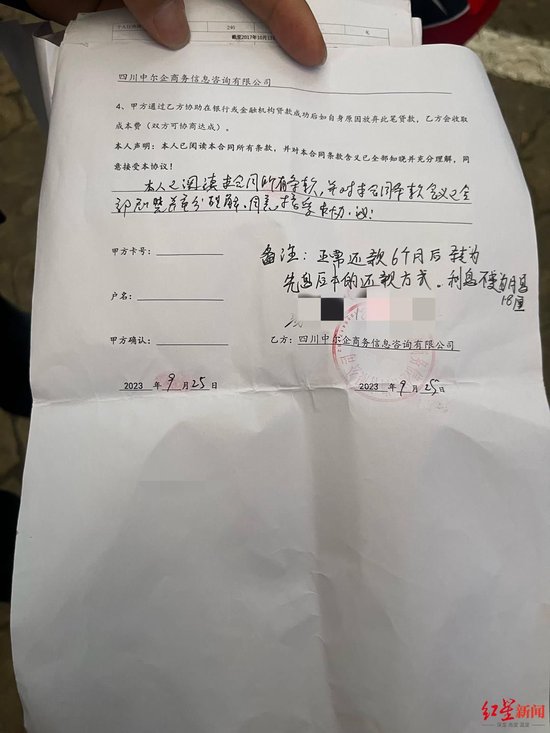 290
元
截至2017年10月
四川中尔企商务信息咨询有限公司
4、甲方通过乙方协助在银行或金融机构贷款成功后如自身原因放弃此笔贷款,乙方会收取
成本费(双方可协商达成)。
本人声明:本人已阅读本合同所有条款,并对本合同条款含义已全部知晓并充分理解,同
意接受本协议!
本人已阅读本合同所有条款,并对本合同条款含义已全
部知晓并充分理解,同意接受本协议!
备注:正常还款6个月后转为
先息后本的还款方式。利息不变为月息
1.8厘
甲方卡号:
户名:
甲方确认:
乙方:四川中尔企商务信息咨询有限公司
2023 年 9 月 25 日
2023 年 9 月 25 日
红星新闻
深度 态度 温度